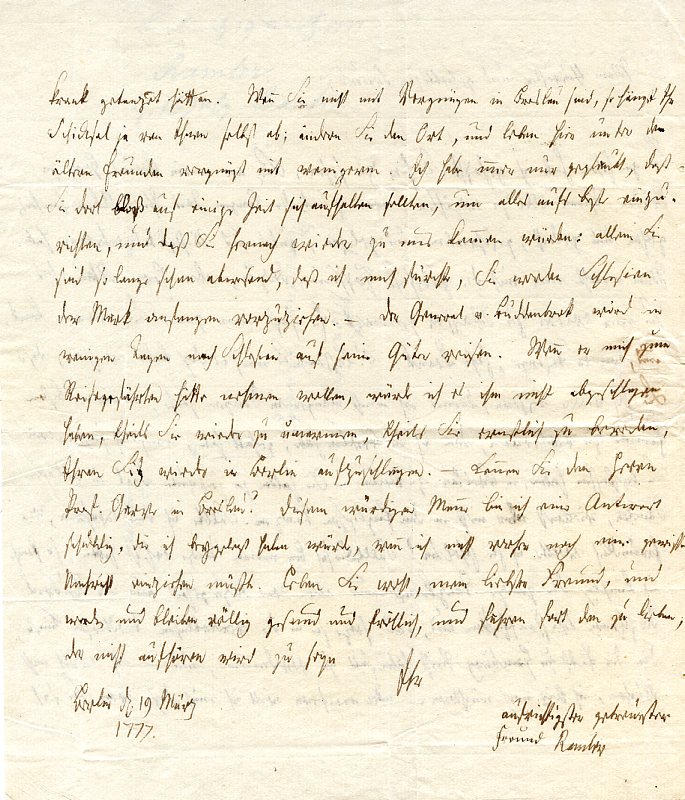 krank getanzt hätten. Wenn Sie nicht mit Vergnügen in Breslau sind, so hängt Ihr
Schicksal ja von Ihnen selbst ab; ändern Sie den Ort, und leben hier unter den
ältern Freunden vergnügt mit wenigerm. Ich habe immer nur geglaubt, daß
Sie dort bloß auf einige Zeit sich aufhalten sollten, um alles aufs beste einzu-
richten, und daß Sie hernach wieder zu uns kommen würden: allein Sie
sind so lange schon abwesend, daß ich mich fürchte, Sie werden Schlesien
der Mark anfangen vorzuziehen. — Der General v. Buddenbrok wird in
wenigen Tagen nach Schlesien auf seine Güter reisen. Wenn er mich zum
Reisegefährten hätte nehmen wollen, würde ich es ihm nicht abgeschlagen
haben, theils Sie wieder zu umarmen, theils Sie ernstlich zu bereden,
Ihren Sitz wieder in Berlin aufzuschlagen. — Kennen Sie den Herrn
Prof. Garve in Breslau? Diesem würdigen Mann bin ich eine Antwort
schuldig, die ich beygelegt haben würde, wenn ich nicht vorher noch eine gewisse
Nachricht einziehen müßte. Leben Sie wohl, mein liebster Freund, und
werden und bleiben völlig gesund und fröhlich, und fahren fort den zu lieben,
der nicht aufhören wird zu seyn
Ihr
Berlin d. 19 März
1777.
aufrichtigster getreuester
Freund Ramler